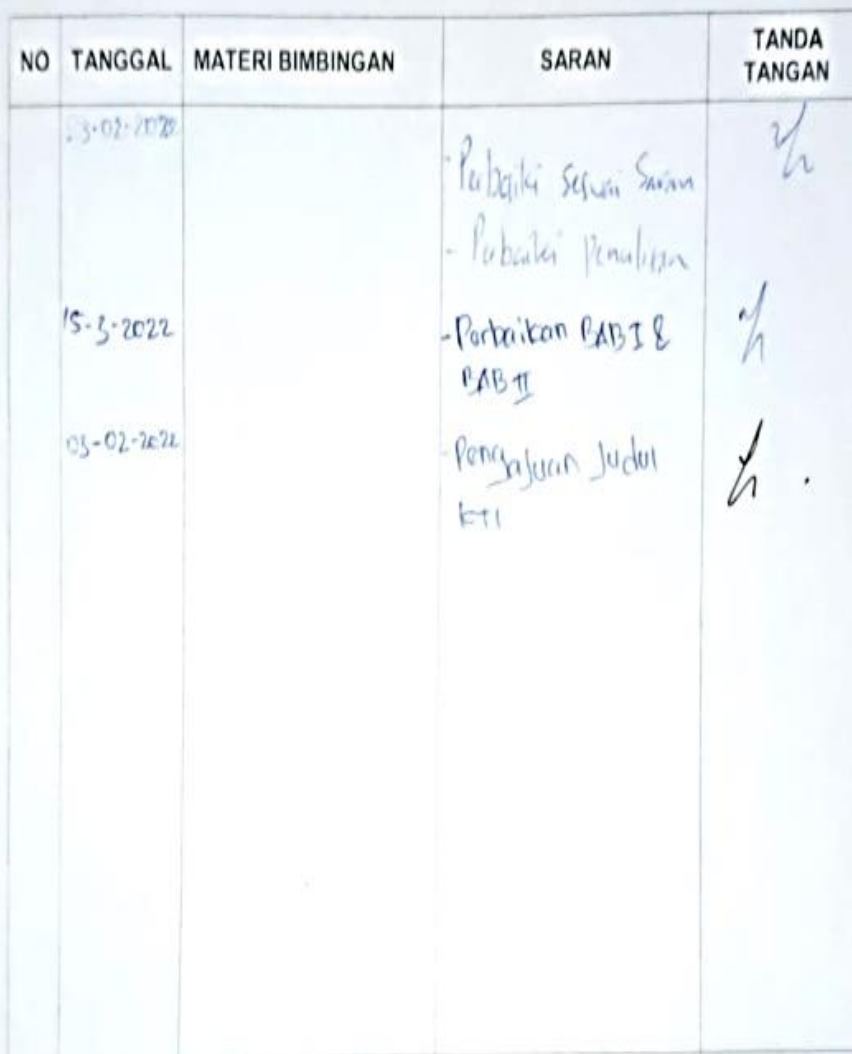 NO TANGGAL MATERI BIMBINGAN SARAN TANDA TANGAN
3-02-2022
- Perbaiki Sesuai Saran
- Perbaiki Penulisan
15-3-2022 - Perbaikan BAB I &
BAB II
03-02-2022 - Pengajuan Judul
KTI